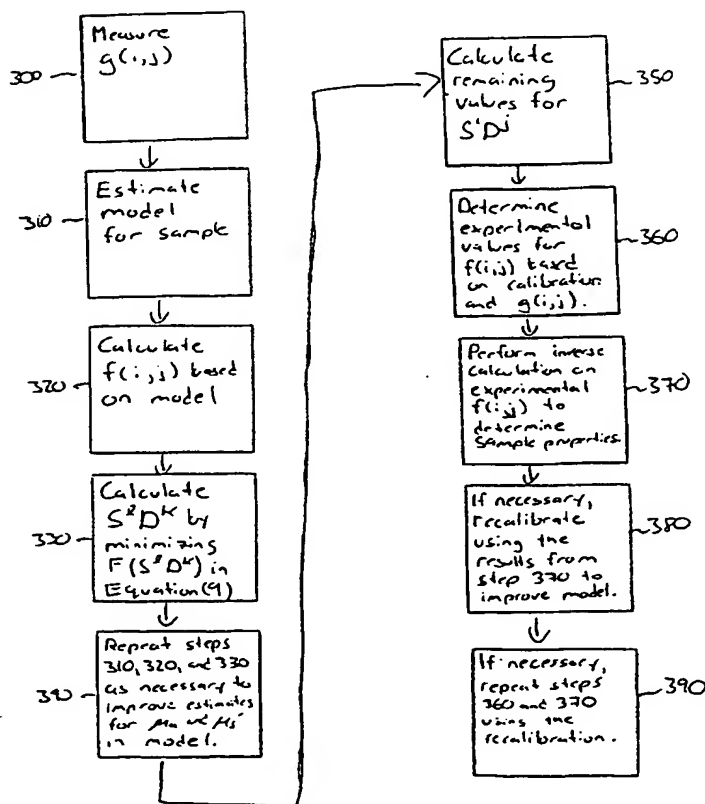 300
Measure
g(i,j)
310
Estimate
model
for sample
320
Calculate
f(i,j) based
on model
330
Calculate
SˡDᵏ by
minimizing
F(SˡDᵏ) in
Equation(9)
340
Repeat steps
310, 320, and 330
as necessary to
improve estimates
for μa & μs'
in model.
350
Calculate
remaining
values for
SⁱDʲ
360
Determine
experimental
values for
f(i,j) based
on calibration
and g(i,j).
370
Perform inverse
calculation on
experimental
f(i,j) to
determine
sample properties.
380
If necessary,
recalibrate
using the
results from
step 370 to
improve model.
390
If necessary,
repeat steps
360 and 370
using the
recalibration.